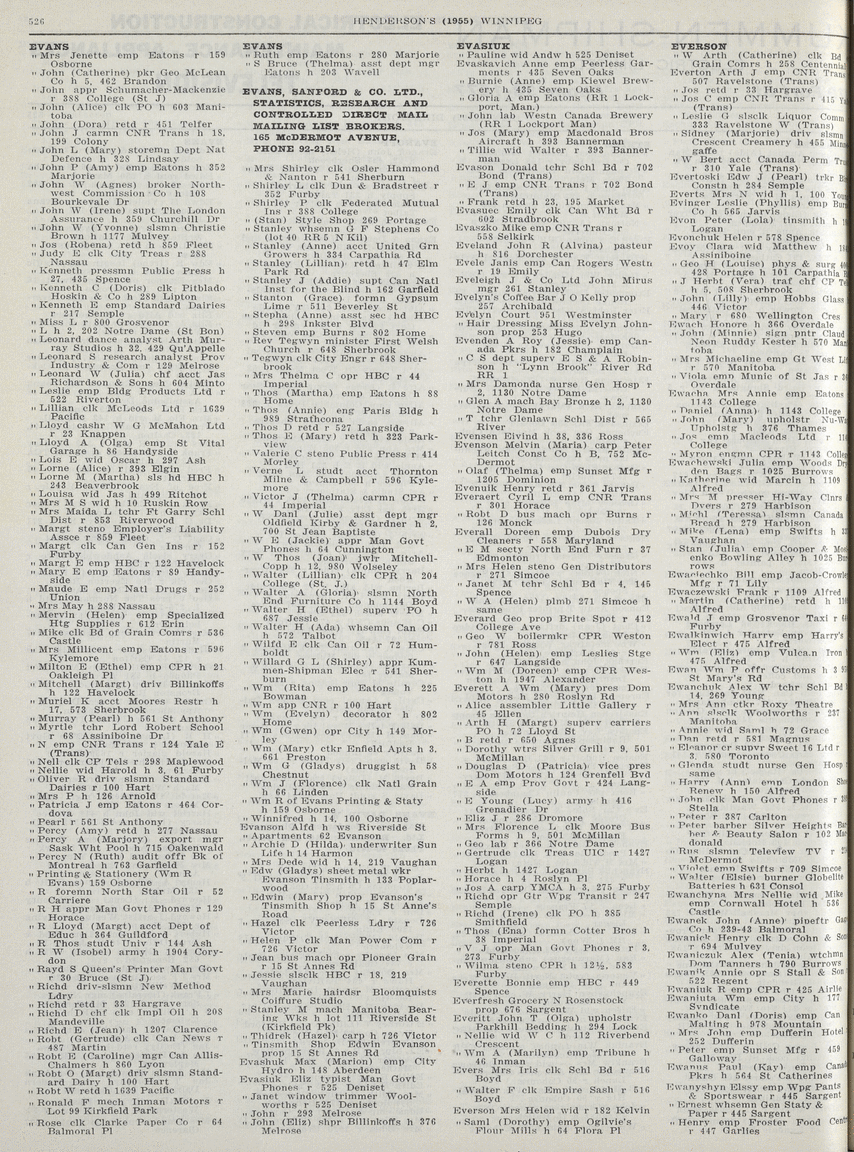 526
HENDERSON'S (1955) WINNIPEG
EVANS
" Mrs Jenette emp Eatons r 159
Osborne
" John (Catherine) pkr Geo McLean
Co h 5, 462 Brandon
" John appr Schumacher-Mackenzie
r 388 College (St J)
" John (Alice) clk PO h 603 Mani-
toba
" John (Dora) retd r 451 Telfer
" John J carmn CNR Trans h 18,
199 Colony
" John L (Mary) storemn Dept Nat
Defence h 328 Lindsay
" John P (Amy) emp Eatons h 352
Marjorie
" John W (Agnes) broker North-
west Commission Co h 108
Bourkevale Dr
" John W (Irene) supt The London
Assurance h 359 Churchill Dr
" John W (Yvonne) slsmn Christie
Brown h 1177 Mulvey
" Jos (Robena) retd h 859 Fleet
" Judy E clk City Treas r 288
Nassau
" Kenneth pressmn Public Press h
27, 435 Spence
" Kenneth C (Doris) clk Pitblado
Hoskin & Co h 289 Lipton
" Kenneth E emp Standard Dairies
r 217 Semple
" Miss L r 800 Grosvenor
" L h 2, 202 Notre Dame (St Bon)
" Leonard dance analyst Arth Mur-
ray Studios h 32, 429 Qu'Appelle
" Leonard S research analyst Prov
Industry & Com r 129 Melrose
" Leonard W (Julia) chf acct Jas
Richardson & Sons h 604 Minto
" Leslie emp Bldg Products Ltd r
522 Riverton
" Lillian clk McLeods Ltd r 1639
Pacific
" Lloyd cashr W G McMahon Ltd
r 23 Knappen
" Lloyd A (Olga) emp St Vital
Garage h 86 Handyside
" Lois E wid Oscar h 297 Ash
" Lorne (Alice) r 393 Elgin
" Lorne M (Martha) sls hd HBC h
243 Beaverbrook
" Louisa wid Jas h 499 Ritchot
" Mrs M S wid h 10 Ruskin Row
" Mrs Maida L tchr Ft Garry Schl
Dist r 853 Riverwood
" Margt steno Employer's Liability
Assce r 859 Fleet
" Margt clk Can Gen Ins r 152
Furby
" Margt E emp HBC r 122 Havelock
" Mary E emp Eatons r 89 Handy-
side
" Maude E emp Natl Drugs r 252
Union
" Mrs May h 288 Nassau
" Mervin (Helen) emp Specialized
Htg Supplies r 612 Erin
" Mike clk Bd of Grain Comrs r 536
Castle
" Mrs Millicent emp Eatons r 596
Kylemore
" Milton E (Ethel) emp CPR h 21
Oakleigh Pl
" Mitchell (Margt) driv Billinkoffs
h 122 Havelock
" Muriel K acct Moores Restr h
17, 573 Sherbrook
" Murray (Pearl) h 561 St Anthony
" Myrtle tchr Lord Robert School
r 68 Assiniboine Dr
" N emp CNR Trans r 124 Yale E
(Trans)
" Nell clk CP Tels r 298 Maplewood
" Nellie wid Harold h 3, 61 Furby
" Oliver R driv slsmn Standard
Dairies r 100 Hart
" Mrs P h 126 Arnold
" Patricia J emp Eatons r 464 Cor-
dova
" Pearl r 561 St Anthony
" Percy (Amy) retd h 277 Nassau
" Percy A (Marjory) export mgr
Sask Wht Pool h 715 Oakenwald
" Percy N (Ruth) audit offr Bk of
Montreal h 763 Garfield
" Printing & Stationery (Wm R
Evans) 159 Osborne
" R foremn North Star Oil r 52
Carriere
" R H appr Man Govt Phones r 129
Horace
" R Lloyd (Margt) acct Dept of
Educ h 364 Guildford
" R Thos studt Univ r 144 Ash
" R W (Isobel) army h 1904 Cory-
don
" Rayd S Queen's Printer Man Govt
r 30 Bruce (St J)
" Richd driv-slsmn New Method
Ldry
" Richd retd r 33 Hargrave
" Richd D chf clk Impl Oil h 208
Mandeville
" Richd E (Jean) h 1207 Clarence
" Robt (Gertrude) clk Can News r
487 Martin
" Robt E (Caroline) mgr Can Allis-
Chalmers h 860 Lyon
" Robt O (Margt) driv slsmn Stand-
ard Dairy h 100 Hart
" Robt W retd h 1639 Pacific
" Ronald F mech Inman Motors r
Lot 99 Kirkfield Park
" Rose clk Clarke Paper Co r 64
Balmoral Pl
EVANS
" Ruth emp Eatons r 280 Marjorie
" S Bruce (Thelma) asst dept mgr
Eatons h 203 Wavell
EVANS, SANFORD & CO. LTD.,
STATISTICS, RESEARCH AND
CONTROLLED DIRECT MAIL
MAILING LIST BROKERS.
165 McDERMOT AVENUE,
PHONE 92-2151
" Mrs Shirley clk Osler Hammond
& Nanton r 541 Sherburn
" Shirley L clk Dun & Bradstreet r
352 Furby
" Shirley P clk Federated Mutual
Ins r 388 College
" (Stan) Style Shop 269 Portage
" Stanley whsemn G F Stephens Co
(lot 40 RR 5 N Kil)
" Stanley (Anne) acct United Grn
Growers h 334 Carpathia Rd
" Stanley (Lillian) retd h 47 Elm
Park Rd
" Stanley J (Addie) supt Can Natl
Inst for the Blind h 162 Garfield
" Stanton (Grace) formn Gypsum
Lime r 511 Beverley St
" Stepha (Anne) asst sec hd HBC
h 298 Inkster Blvd
" Steve emp Burns r 802 Home
" Rev Tegwyn minister First Welsh
Church r 648 Sherbrook
" Tegwyn clk City Engr r 648 Sher-
brook
" Mrs Thelma C opr HBC r 44
Imperial
" Thos (Martha) emp Eatons h 88
Home
" Thos (Annie) eng Paris Bldg h
989 Strathcona
" Thos D retd r 527 Langside
" Thos E (Mary) retd h 323 Park-
view
" Valerie C steno Public Press r 414
Morley
" Verne L studt acct Thornton
Milne & Campbell r 596 Kyle-
more
" Victor J (Thelma) carmn CPR r
44 Imperial
" W Danl (Julie) asst dept mgr
Oldfield Kirby & Gardner h 2,
700 St Jean Baptiste
" W E (Jackie) appr Man Govt
Phones h 64 Cunnington
" W Thos (Joan) jwlr Mitchell-
Copp h 12, 980 Wolseley
" Walter (Lillian) clk CPR h 204
College (St. J.)
" Walter A (Gloria) slsmn North
End Furniture Co h 1144 Boyd
" Walter H (Ethel) superv PO h
687 Jessie
" Walter H (Ada) whsemn Can Oil
h 572 Talbot
" Wilfd E clk Can Oil r 72 Hum-
boldt
" Willard G L (Shirley) appr Kum-
men-Shipman Elec r 541 Sher-
burn
" Wm (Rita) emp Eatons h 225
Bowman
" Wm app CNR r 100 Hart
" Wm (Evelyn) decorator h 802
Home
" Wm (Gwen) opr City h 149 Mor-
ley
" Wm (Mary) ctkr Enfield Apts h 3,
661 Preston
" Wm G (Gladys) druggist h 58
Chestnut
" Wm J (Florence) clk Natl Grain
h 66 Linden
" Wm R of Evans Printing & Staty
h 159 Osborne
" Winnifred h 14, 100 Osborne
Evanson Alfd h ws Riverside St
" Apartments 62 Evanson
" Archie D (Hilda) underwriter Sun
Life h 14 Harmon
" Mrs Dede wid h 14, 219 Vaughan
" Edw (Gladys) sheet metal wkr
Evanson Tinsmith h 133 Poplar-
wood
" Edwin (Mary) prop Evanson's
Tinsmith Shop h 15 St Anne's
Road
" Hazel clk Peerless Ldry r 726
Victor
" Helen P clk Man Power Com r
726 Victor
" Jean bus mach opr Pioneer Grain
r 15 St Annes Rd
" Jessie slsclk HBC r 18, 219
Vaughan
" Mrs Marie hairdsr Bloomquists
Coiffure Studio
" Stanley M mach Manitoba Bear-
ing Wks h lot 111 Riverside St
(Kirkfield Pk)
" Thidrek (Hazel) carp h 726 Victor
" Tinsmith Shop Edwin Evanson
prop 15 St Annes Rd
Evashuk Max (Marion) emp City
Hydro h 148 Aberdeen
Evasiuk Eliz typist Man Govt
Phones r 525 Deniset
" Janet window trimmer Wool-
worths r 525 Deniset
" John r 293 Melrose
" John (Eliz) shpr Billinkoffs h 376
Melrose
EVASIUK
" Pauline wid Andw h 525 Deniset
Evaskavich Anne emp Peerless Gar-
ments r 435 Seven Oaks
" Burnie (Anne) emp Kiewel Brew-
ery h 435 Seven Oaks
" Gloria A emp Eatons (RR 1 Lock-
port, Man.)
" John lab Westn Canada Brewery
(RR 1 Lockport Man)
" Jos (Mary) emp Macdonald Bros
Aircraft h 393 Bannerman
" Tillie wid Walter r 393 Banner-
man
Evason Donald tchr Schl Bd r 702
Bond (Trans)
" E J emp CNR Trans r 702 Bond
(Trans)
" Frank retd h 23, 195 Market
Evastec Emily clk Can Wht Bd r
602 Stradbrook
Evaszko Mike emp CNR Trans r
558 Selkirk
Eveland John R (Alvina) pasteur
h 816 Dorchester
Evele Janis emp Can Rogers Westn
r 19 Emily
Eveleigh J & Co Ltd John Mirus
mgr 261 Stanley
Evelyn's Coffee Bar J O Kelly prop
257 Archibald
Evelyn Court 951 Westminster
" Hair Dressing Miss Evelyn John-
son prop 253 Hugo
Evenden A Roy (Jessie) emp Can-
ada Pkrs h 182 Champlain
" C S dept superv E S & A Robin-
son h "Lynn Brook" River Rd
RR 1
" Mrs Damonda nurse Gen Hosp r
2, 1130 Notre Dame
" Glen A mach Bay Bronze h 2, 1130
Notre Dame
" T tchr Glenlawn Schl Dist r 565
River
Evensen Eivind h 38, 336 Ross
Evenson Melvin (Maria) carp Peter
Leitch Const Co h B, 752 Mc-
Dermot
" Olaf (Thelma) emp Sunset Mfg r
1205 Dominion
Evenuik Henry retd r 361 Jarvis
Everaert Cyril L emp CNR Trans
r 301 Horace
" Robt D bus mach opr Burns r
126 Monck
Everall Doreen emp Dubois Dry
Cleaners r 558 Maryland
" E M secty North End Furn r 37
Edmonton
" Mrs Helen steno Gen Distributors
r 271 Simcoe
" Janet M tchr Schl Bd r 4, 145
Spence
" W A (Helen) plmb 271 Simcoe h
same
Everard Geo prop Brite Spot r 412
College Ave
" Geo W boilermkr CPR Weston
r 781 Ross
" John (Helen) emp Leslies Stge
r 647 Langside
" Wm M (Doreen) emp CPR Wes-
ton h 1947 Alexander
Everett A Wm (Mary) pres Dom
Motors h 280 Roslyn Rd
" Alice assembler Little Gallery r
45 Ellen
" Arth H (Margt) superv carriers
PO h 72 Lloyd St
" B retd r 650 Agnes
" Dorothy wtrs Silver Grill r 9, 501
McMillan
" Douglas D (Patricia) vice pres
Dom Motors h 124 Grenfell Bvd
" E A emp Prov Govt r 424 Lang-
side
" E Young (Lucy) army h 416
Grenadier Dr
" Eliz J r 286 Dromore
" Mrs Florence L clk Moore Bus
Forms h 9, 501 McMillan
" Geo lab r 366 Notre Dame
" Gertrude clk Treas UIC r 1427
Logan
" Herbt h 1427 Logan
" Horace h 4 Roslyn Pl
" Jos A carp YMCA h 3, 275 Furby
" Richd opr Gtr Wpg Transit r 247
Semple
" Richd (Irene) clk PO h 385
Smithfield
" Thos (Ena) formn Cotter Bros h
38 Imperial
" V J opr Man Govt Phones r 3,
273 Furby
" Wilma steno CPR h 12½, 583
Furby
Everette Bonnie emp HBC r 449
Spence
Everfresh Grocery N Rosenstock
prop 676 Sargent
Everitt John T (Olga) upholstr
Parkhill Bedding h 294 Lock
" Nellie wid W C h 112 Riverbend
Crescent
" Wm A (Marilyn) emp Tribune h
46 Inman
Evers Mrs Iris clk Schl Bd r 516
Boyd
" Walter F clk Empire Sash r 516
Boyd
Everson Mrs Helen wid r 182 Kelvin
" Saml (Dorothy) emp Ogilvie's
Flour Mills h 64 Flora Pl
EVERSON
" W Arth (Catherine) clk Bd
Grain Comrs h 258 Centennial
Everton Arth J emp CNR Trans
507 Ravelstone (Trans)
" Jos retd r 33 Hargrave
" Jos C emp CNR Trans r 415
(Trans)
" Leslie G slsclk Liquor Comm
333 Ravelstone W (Trans)
" Sidney (Marjorie) driv slsmn
Crescent Creamery h 455
gaffe
" W Bert acct Canada Perm
r 310 Yale (Trans)
Evertoski Edw J (Pearl) trkr
Constn h 284 Semple
Everts Mrs N wid h 1, 100
Evinger Leslie (Phyllis) emp
Co h 565 Jarvis
Evon Peter (Lola) tinsmith h
Logan
Evonchuk Helen r 578 Spence
Evoy Clara wid Matthew h
Assiniboine
" Geo H (Louise) phys & surg
428 Portage h 101 Carpathia
" J Herbt (Vera) traf chf CP
h 5, 508 Sherbrook
" John (Lilly) emp Hobbs Glass
446 Victor
" Mary r 680 Wellington Cres
Ewach Honore h 366 Overdale
" John (Minnie) sign pntr Claud
Neon Ruddy Kester h 570
toba
" Mrs Michaeline emp Gt West
r 570 Manitoba
" Viola emp Munic of St Jas r
Overdale
Ewacha Mrs Annie emp Eatons
1143 College
" Daniel (Anna) h 1143 College
" John (Mary) upholstr
Upholstg h 376 Thames
" Jos emp Macleods Ltd r
College
" Myron engmn CPR r 1143
Ewachewski Julia emp Woods
den Bags r 1025 Burrows
" Katherine wid Marcin h 1109
Alfred
" Mrs M presser Hi-Way Clnrs
Dyers r 279 Harbison
" Michl (Teressa) slsmn Canada
Bread h 279 Harbison
" Mike (Lena) emp Swifts h
Vaughan
" Stan (Julia) emp Cooper &
enko Bowling Alley h 1025
rows
Ewaciechko Bill emp Jacob-Crowley
Mfg r 71 Lily
Ewaczewski Frank r 1109 Alfred
" Martin (Catherine) retd h
Alfred
Ewald J emp Grosvenor Taxi r
Furby
Ewalkinwich Harry emp Harry's
Elect r 475 Alfred
" Wm (Eliz) emp Vulcan Iron
475 Alfred
Ewan Wm P offr Customs h 3
St Mary's Rd
Ewanchuk Alex W tchr Schl Bd
14, 269 Young
" Mrs Ann ctkr Roxy Theatre
" Ann slsclk Woolworths r 237
Manitoba
" Annie wid Saml h 72 Grace
" Dan retd r 581 Magnus
" Eleanor cr supvr Sweet 16 Ltd r
3, 580 Toronto
" Glenda studt nurse Gen Hosp
same
" Harry (Ann) emp London
Renew h 150 Alfred
" John clk Man Govt Phones r
Stella
" Peter r 387 Carlton
" Peter barber Silver Heights
ber & Beauty Salon r 102
donald
" Rus slsmn Teleview TV r
McDermot
" Violet emp Swifts r 709 Simcoe
" Walter (Elsie) burner Globelite
Batteries h 631 Consol
Ewanchyna Mrs Nellie wid Mike
emp Cornwall Hotel h 536
Castle
Ewanek John (Anne) pipeftr
Co h 239-43 Balmoral
Ewanick Henry clk D Cohn &
r 694 Mulvey
Ewaniczuk Alex (Tenia) wtchmn
Dom Tanners h 790 Burrows
Ewanik Annie opr S Stall & Son
522 Regent
Ewaniuk R emp CPR r 425 Airlie
Ewaniuta Wm emp City h 177
Syndicate
Ewanko Danl (Doris) emp Can
Malting h 978 Mountain
" Mrs John emp Dufferin Hotel
252 Dufferin
" Peter emp Sunset Mfg r 459
Galloway
Ewanus Paul (Kay) emp Canada
Pkrs h 564 St Catherines
Ewanyshyn Elssy emp Wpg Pants
& Sportswear r 445 Sargent
" Ernest whsemn Gen Staty &
Paper r 445 Sargent
" Henry emp Froster Food
r 447 Garlies